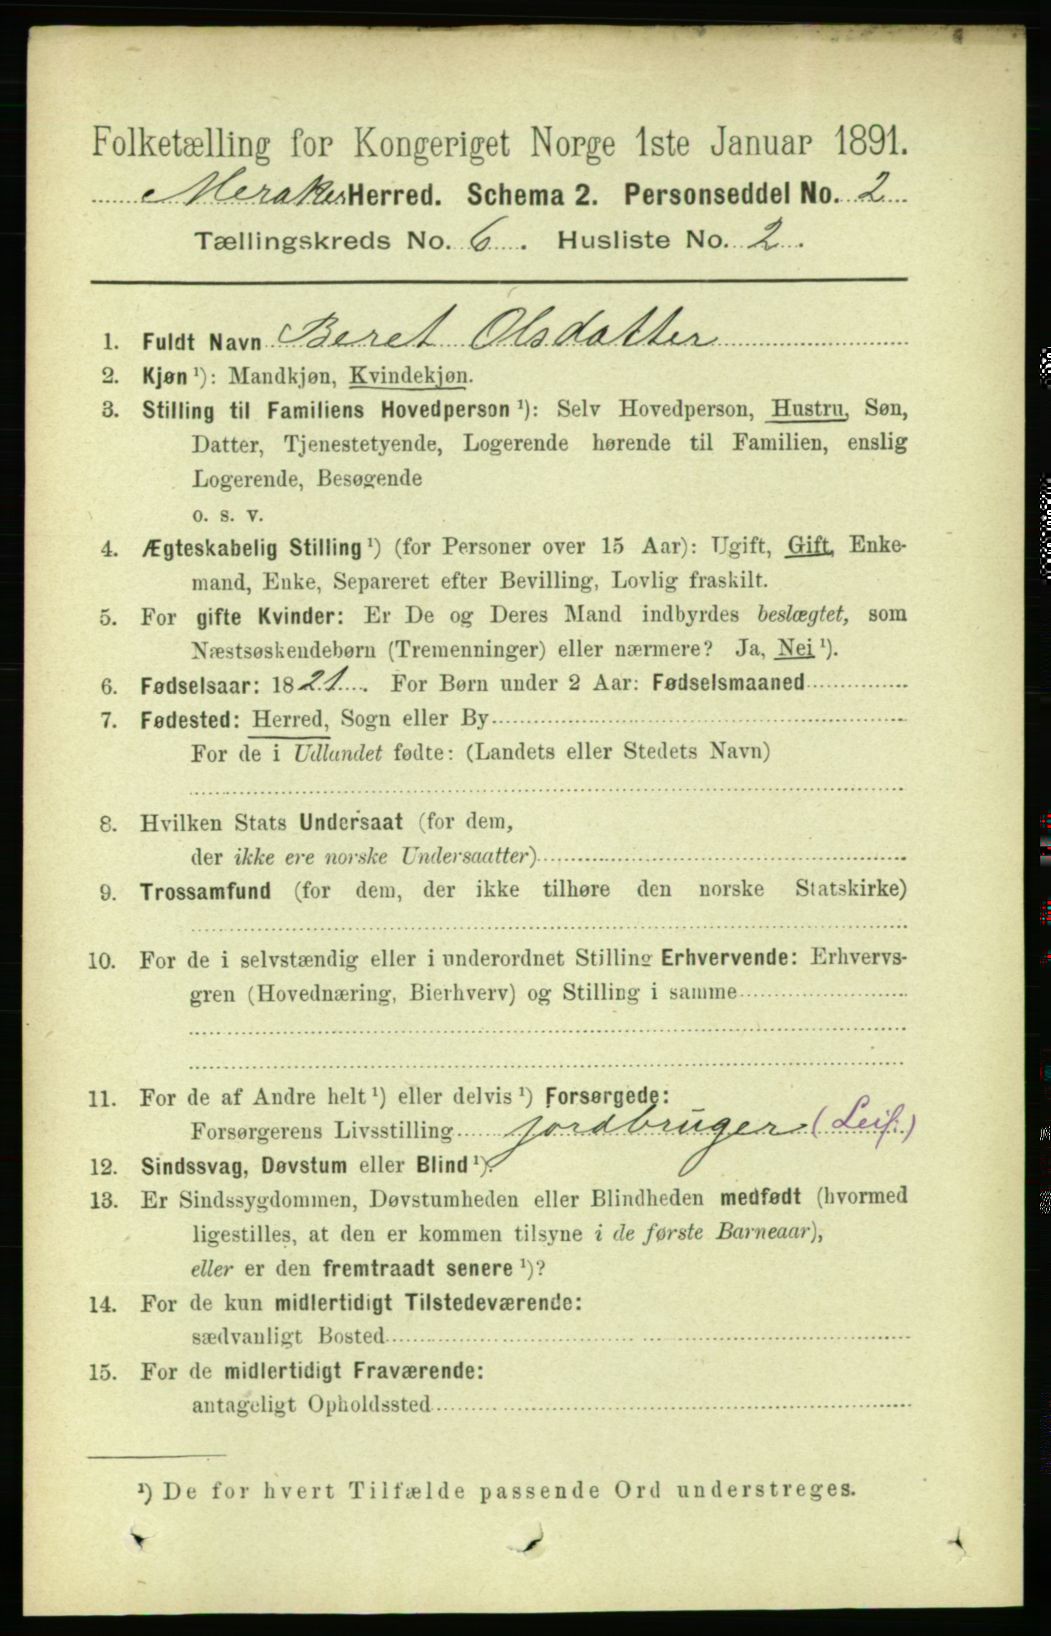 Folketælling for Kongeriget Norge 1ste Januar 1891.
Merakes Herred. Schema 2. Personseddel No. 2
Tællingskreds No. 6. Husliste No. 2.
1. Fuldt Navn Beret Olsdatter
2. Kjøn ¹): Mandkjøn, Kvindekjøn.
3. Stilling til Familiens Hovedperson ¹): Selv Hovedperson, Hustru, Søn,
Datter, Tjenestetyende, Logerende hørende til Familien, enslig
Logerende, Besøgende
o. s. v.
4. Ægteskabelig Stilling ¹) (for Personer over 15 Aar): Ugift, Gift, Enke-
mand, Enke, Separeret efter Bevilling, Lovlig fraskilt.
5. For gifte Kvinder: Er De og Deres Mand indbyrdes beslægtet, som
Næstsøskendebørn (Tremenninger) eller nærmere? Ja, Nei ¹).
6. Fødselsaar: 1821. For Børn under 2 Aar: Fødselsmaaned
7. Fødested: Herred, Sogn eller By
For de i Udlandet fødte: (Landets eller Stedets Navn)
8. Hvilken Stats Undersaat (for dem,
der ikke ere norske Undersaatter)
9. Trossamfund (for dem, der ikke tilhøre den norske Statskirke)
10. For de i selvstændig eller i underordnet Stilling Erhvervende: Erhvervs-
gren (Hovednæring, Bierhverv) og Stilling i samme
11. For de af Andre helt ¹) eller delvis ¹) Forsørgede:
Forsørgerens Livsstilling jordbruger (Leif.)
12. Sindssvag, Døvstum eller Blind ¹).
13. Er Sindssygdommen, Døvstumheden eller Blindheden medfødt (hvormed
ligestilles, at den er kommen tilsyne i de første Barneaar),
eller er den fremtraadt senere ¹)?
14. For de kun midlertidigt Tilstedeværende:
sædvanligt Bosted
15. For de midlertidigt Fraværende:
antageligt Opholdssted
¹) De for hvert Tilfælde passende Ord understreges.